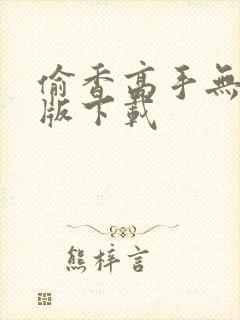 偷香高手無
版下載
熊梓言